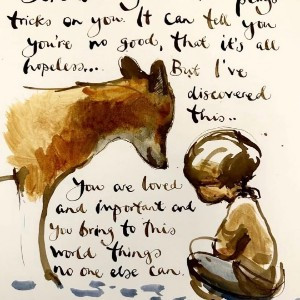 tricks on you. It can tell you
you're no good, that it's all
hopeless...
But I've
discovered
this..
You are loved
and important and
you bring to this
world things
no one else can.